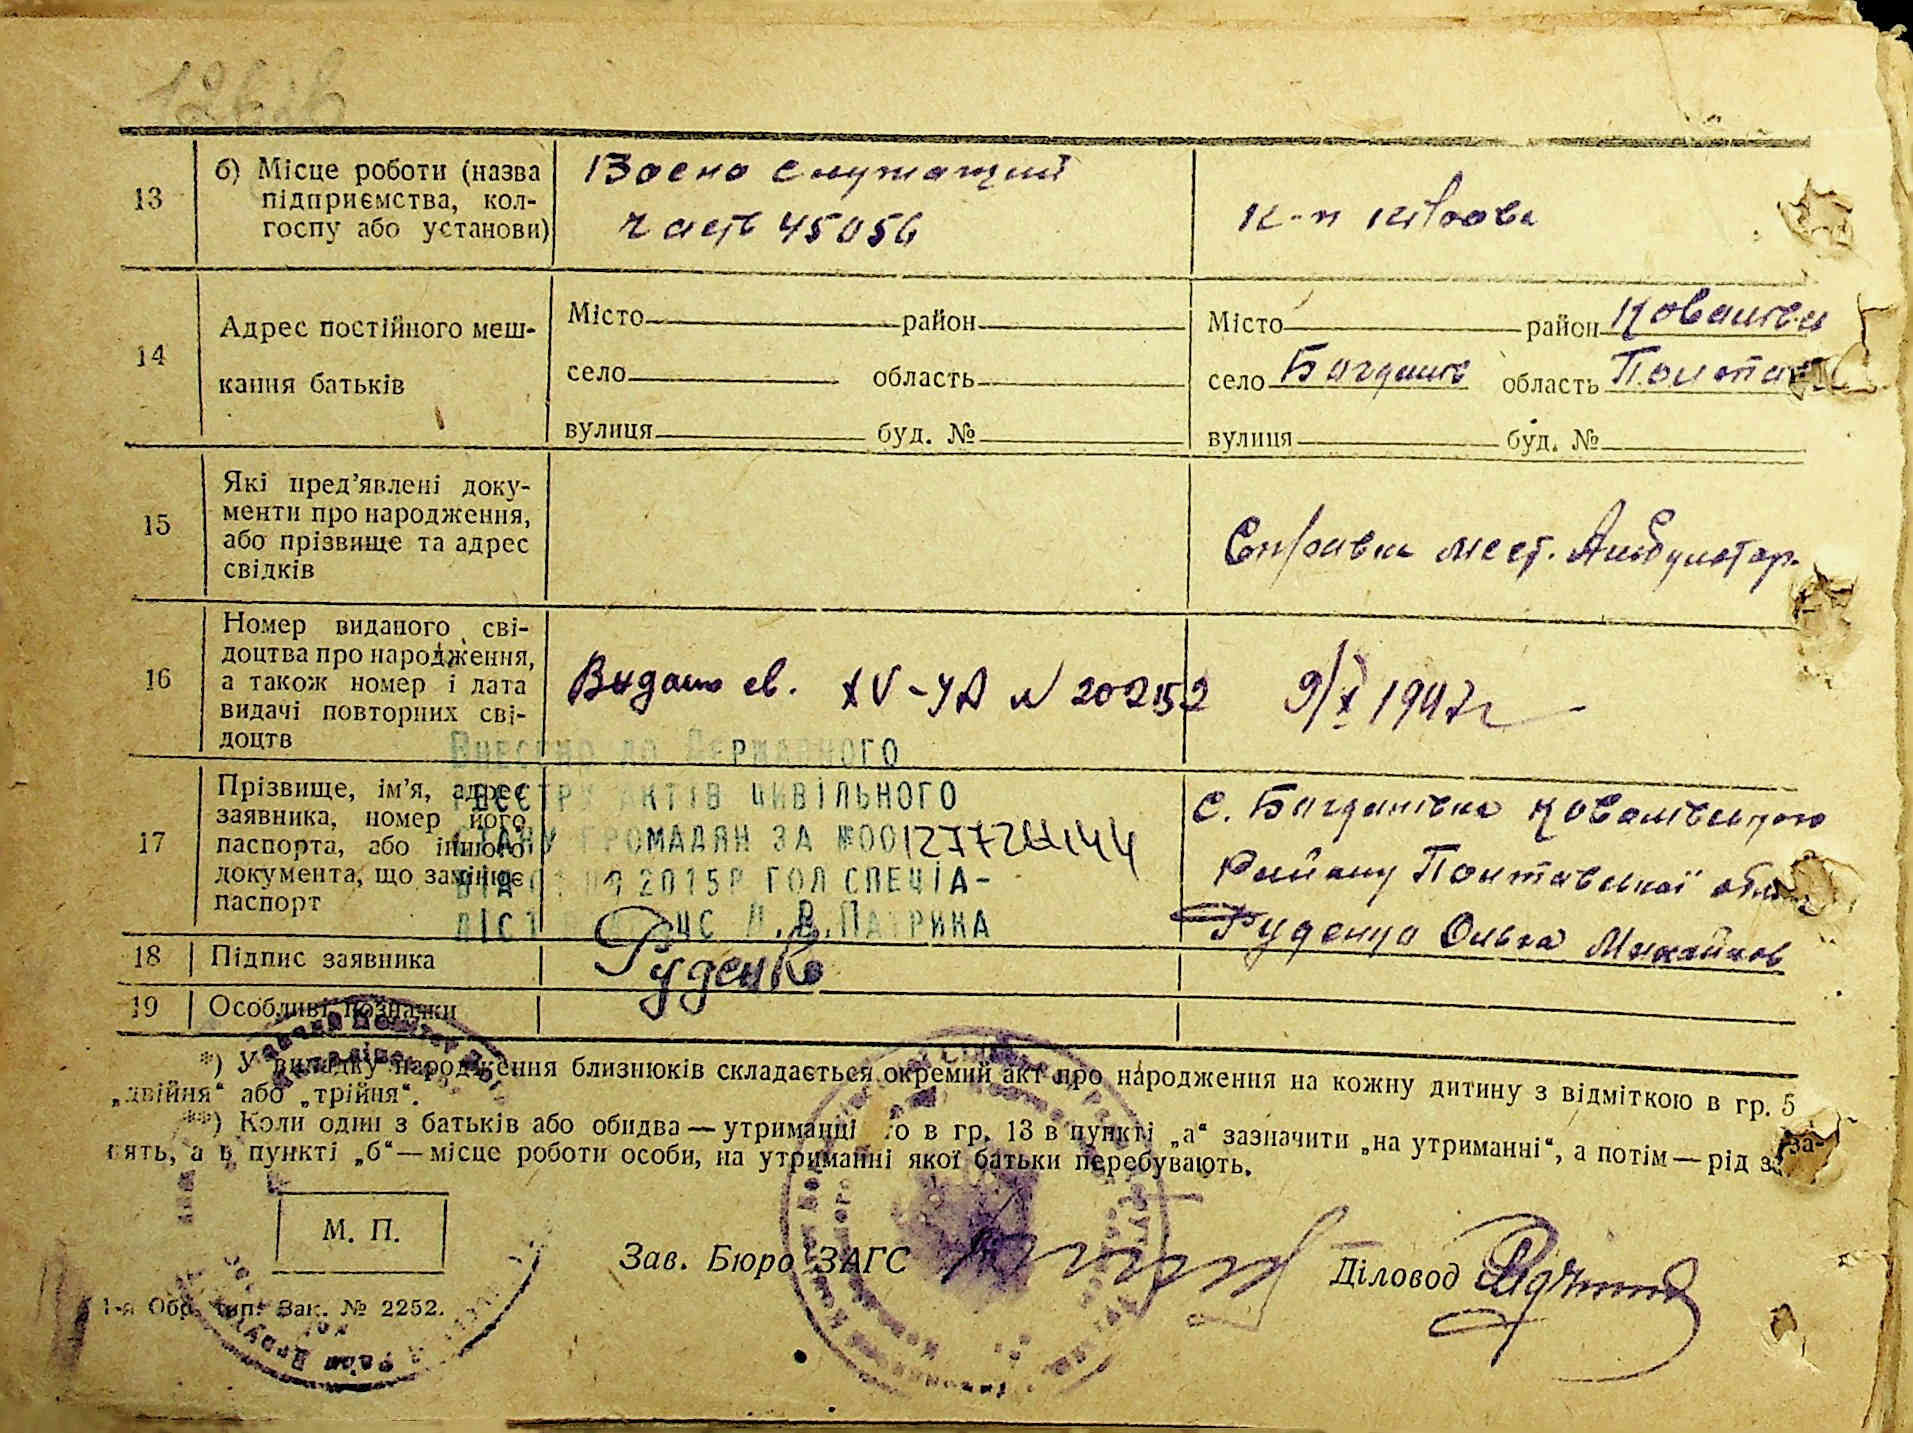 13
б) Місце роботи (назва
підприємства, кол-
госпу або установи)
Воено служащий
часть 45056
к-п
14
Адрес постійного меш-
кання батьків
Місто район
село область
вулиця буд. №
Місто район
село область
вулиця буд. №
15
Які пред’явлені доку-
менти про народження,
або прізвище та адрес
свідків
Справка мест. Амбулатор.
16
Номер виданого сві-
доцтва про народження,
а також номер і дата
видачі повторних сві-
доцтв
Видано св. XV-УА N 200252 9/X 1947г
Внесено до Державного
реєстру актів цивільного
стану громадян за №001277
2015р гол спеціа-
ліст В. Патрина
17
Прізвище, ім’я, адрес
заявника, номер його
паспорта, або іншого
документа, що замінює
паспорт
с. Богданівка
району Полтавської обл
Руденко Ольга
18 Підпис заявника
Руденко
19 Особливі позначки
*) У випадку народження близнюків складається окремий акт про народження на кожну дитину з відміткою в гр. 5
„двійня“ або „трійня“.
**) Коли один з батьків або обидва — утриманці в гр. 13 в пункті „а“ зазначити „на утриманні“, а потім — рід за-
нять, а в пункті „б“ — місце роботи особи, на утриманні якої батьки перебувають.
М. П.
Зав. Бюро ЗАГС
Діловод
1-я Обр. тип. Зак. № 2252.